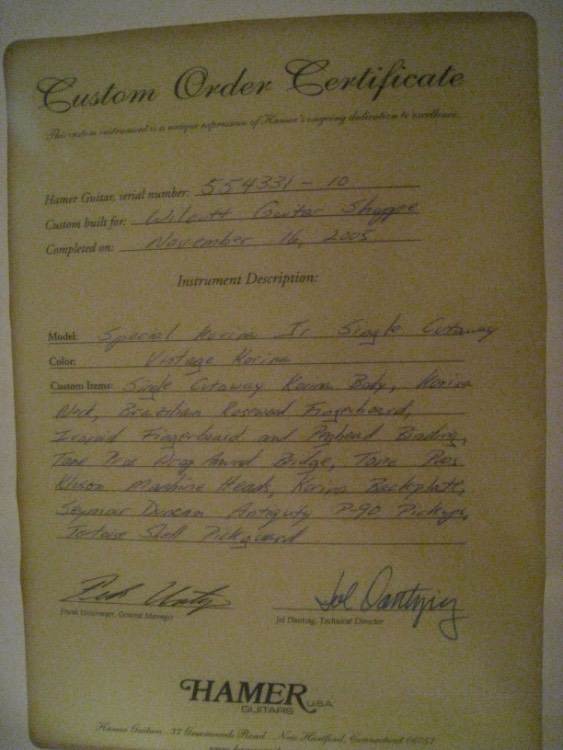 Custom Order Certificate
This custom instrument is a unique expression of Hamer's ongoing dedication to excellence.
Hamer Guitar, serial number: 554331-10
Custom built for: Wilcutt Guitar Shoppe
Completed on: November 16, 2005
Instrument Description:
Model: Special Korina Jr Single Cutaway
Color: Vintage Korina
Custom Items: Single Cutaway Korina Body, Korina
Neck, Brazilian Rosewood Fingerboard,
Ivoroid Fingerboard and Peghead Binding,
Tone Pros Wrap Around Bridge, Tone Pros
Kluson Machine Heads, Korina Backplate,
Seymour Duncan Antiquity P-90 Pickups,
Tortoise Shell Pickguard
Frank Untermeyer, General Manager
Jol Dantzig
Jol Dantzig, Technical Director
HAMER USA
GUITARS
Hamer Guitars . 37 Greenwoods Road . New Hartford, Connecticut 06057